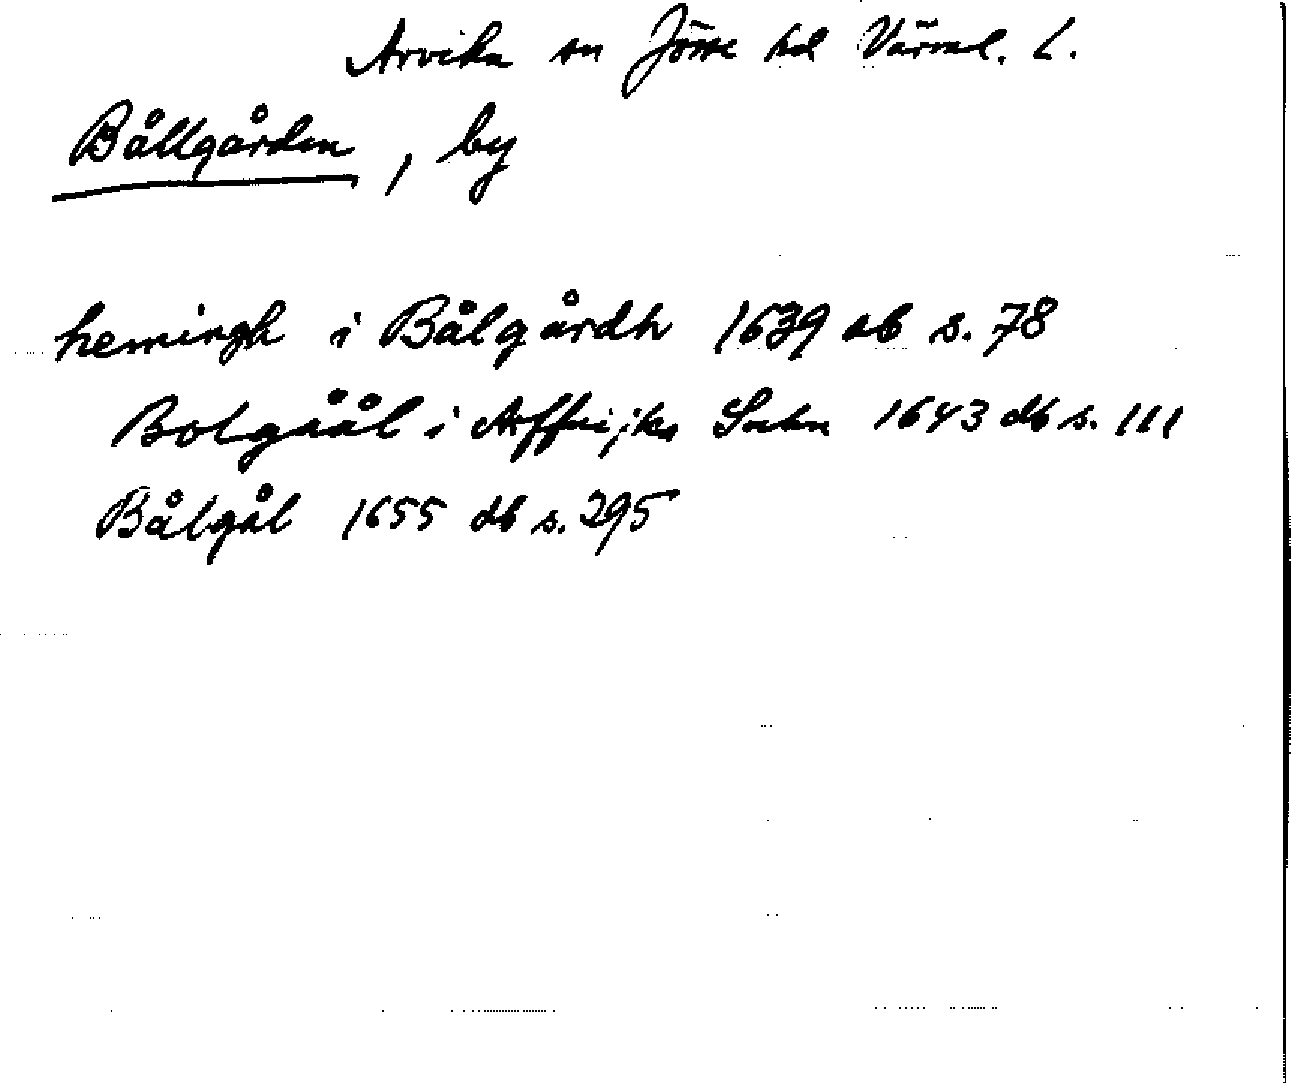 Arvika sn Jösse hd Värml. L.
Bållgården, by
hemingh i Bålgårdh 1639 db s. 78
Bolgåål i Arffuijka Sokn 1643 db s. 111
Bålgål 1655 db s. 295